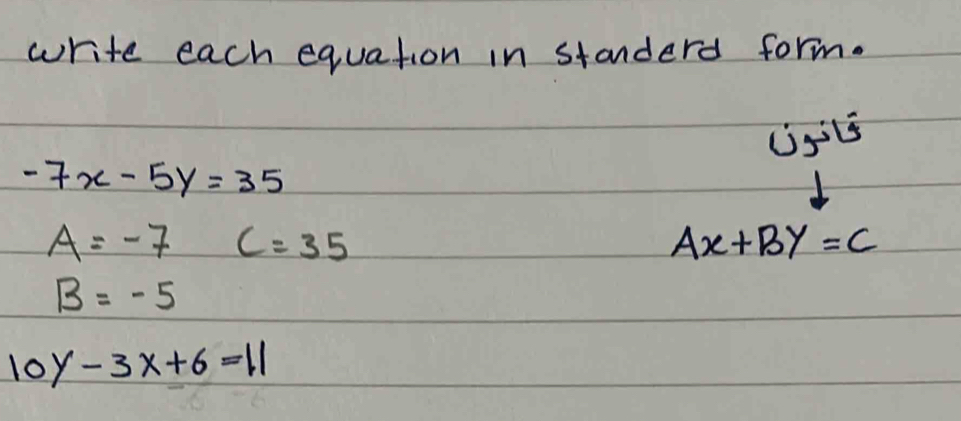 write each equation in standerd form.
قانون
↓
-7x - 5y = 35
A = -7 C = 35
Ax + BY = C
B = -5
10y - 3x + 6 = 11
-6 -6